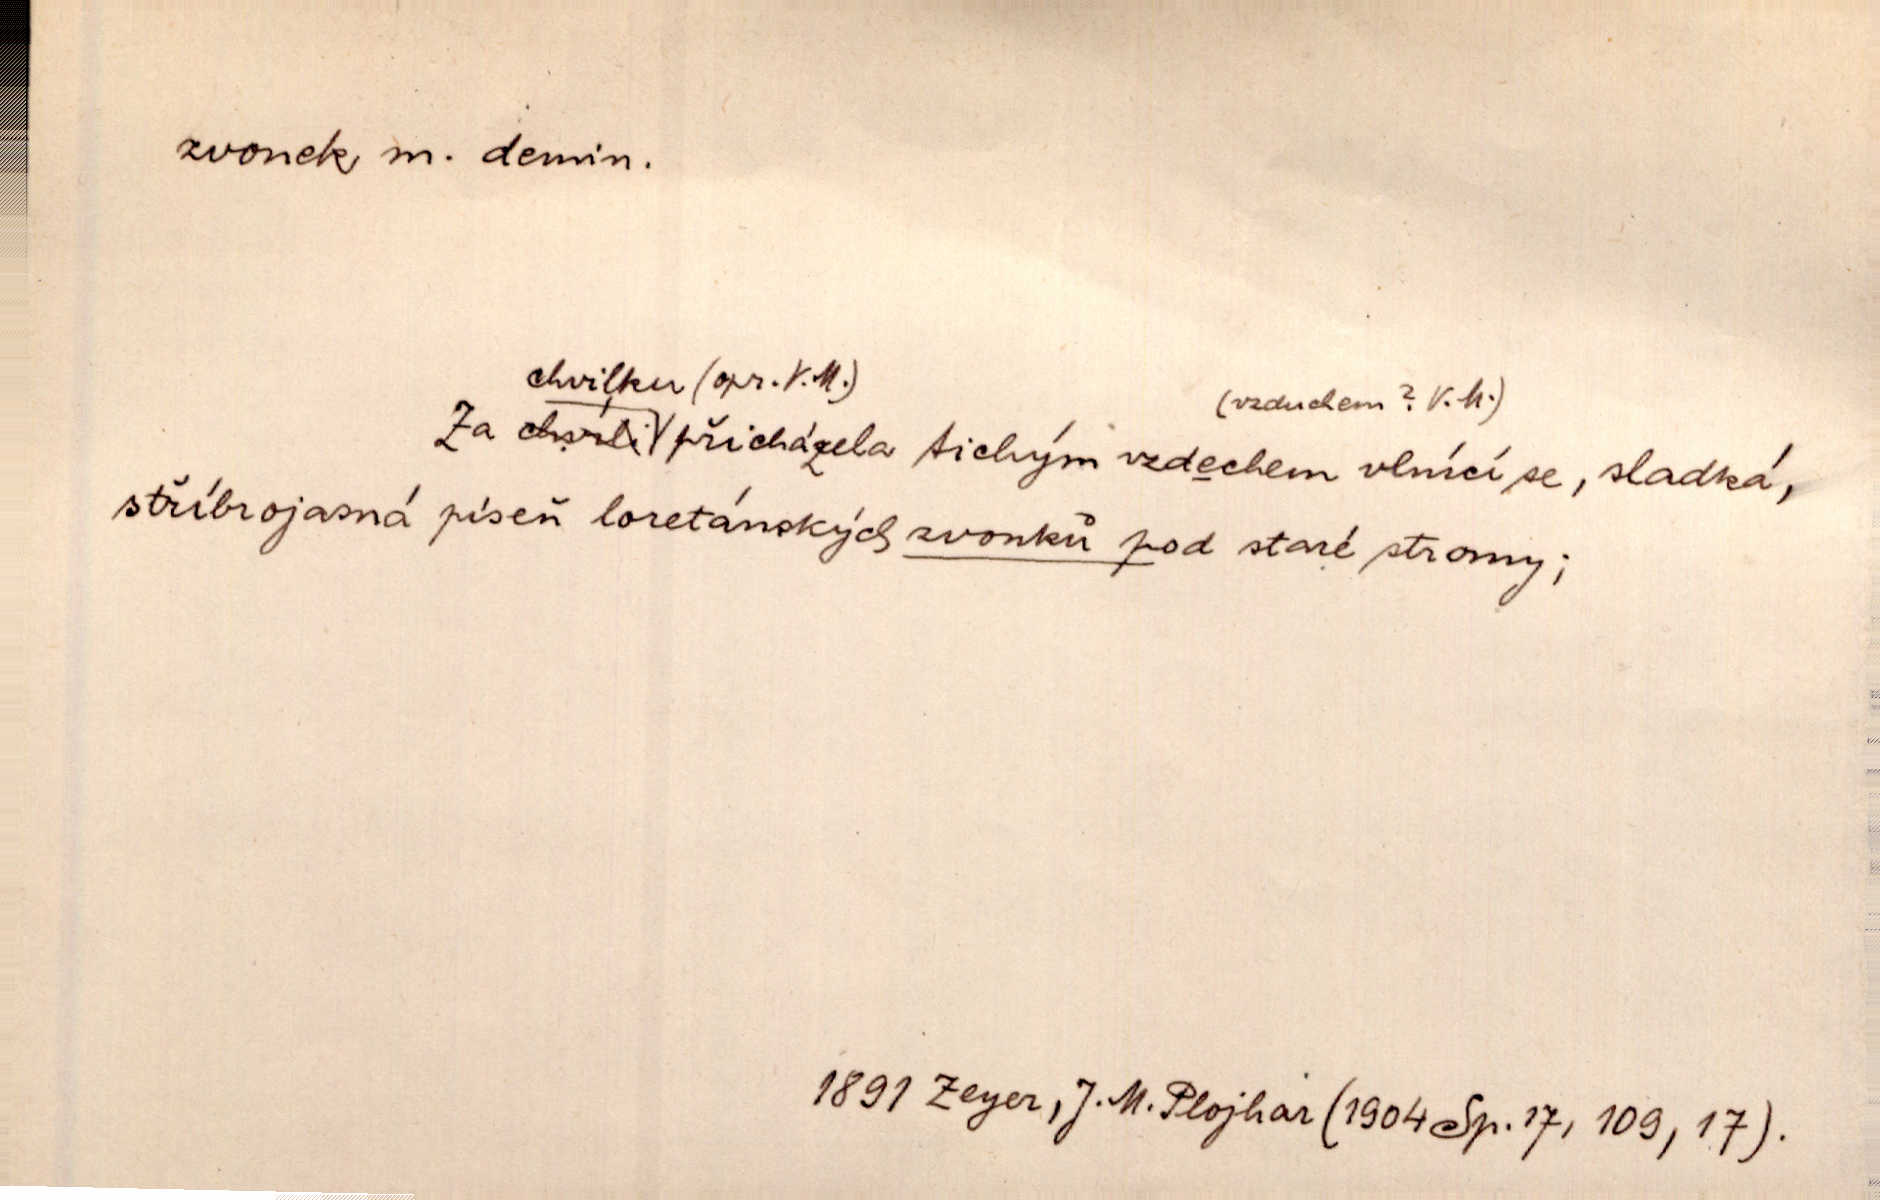 zvonek m. demin.
chvilku (opr. V. M.)
(vzduchem? V. M.)
Za přicházela tichým vzdechem vlnící se, sladká,
stříbrojasná píseň loretánských zvonků pod staré stromy;
1891 Zeyer, J. M. Plojhar (1904 Sp. 17, 109, 17).